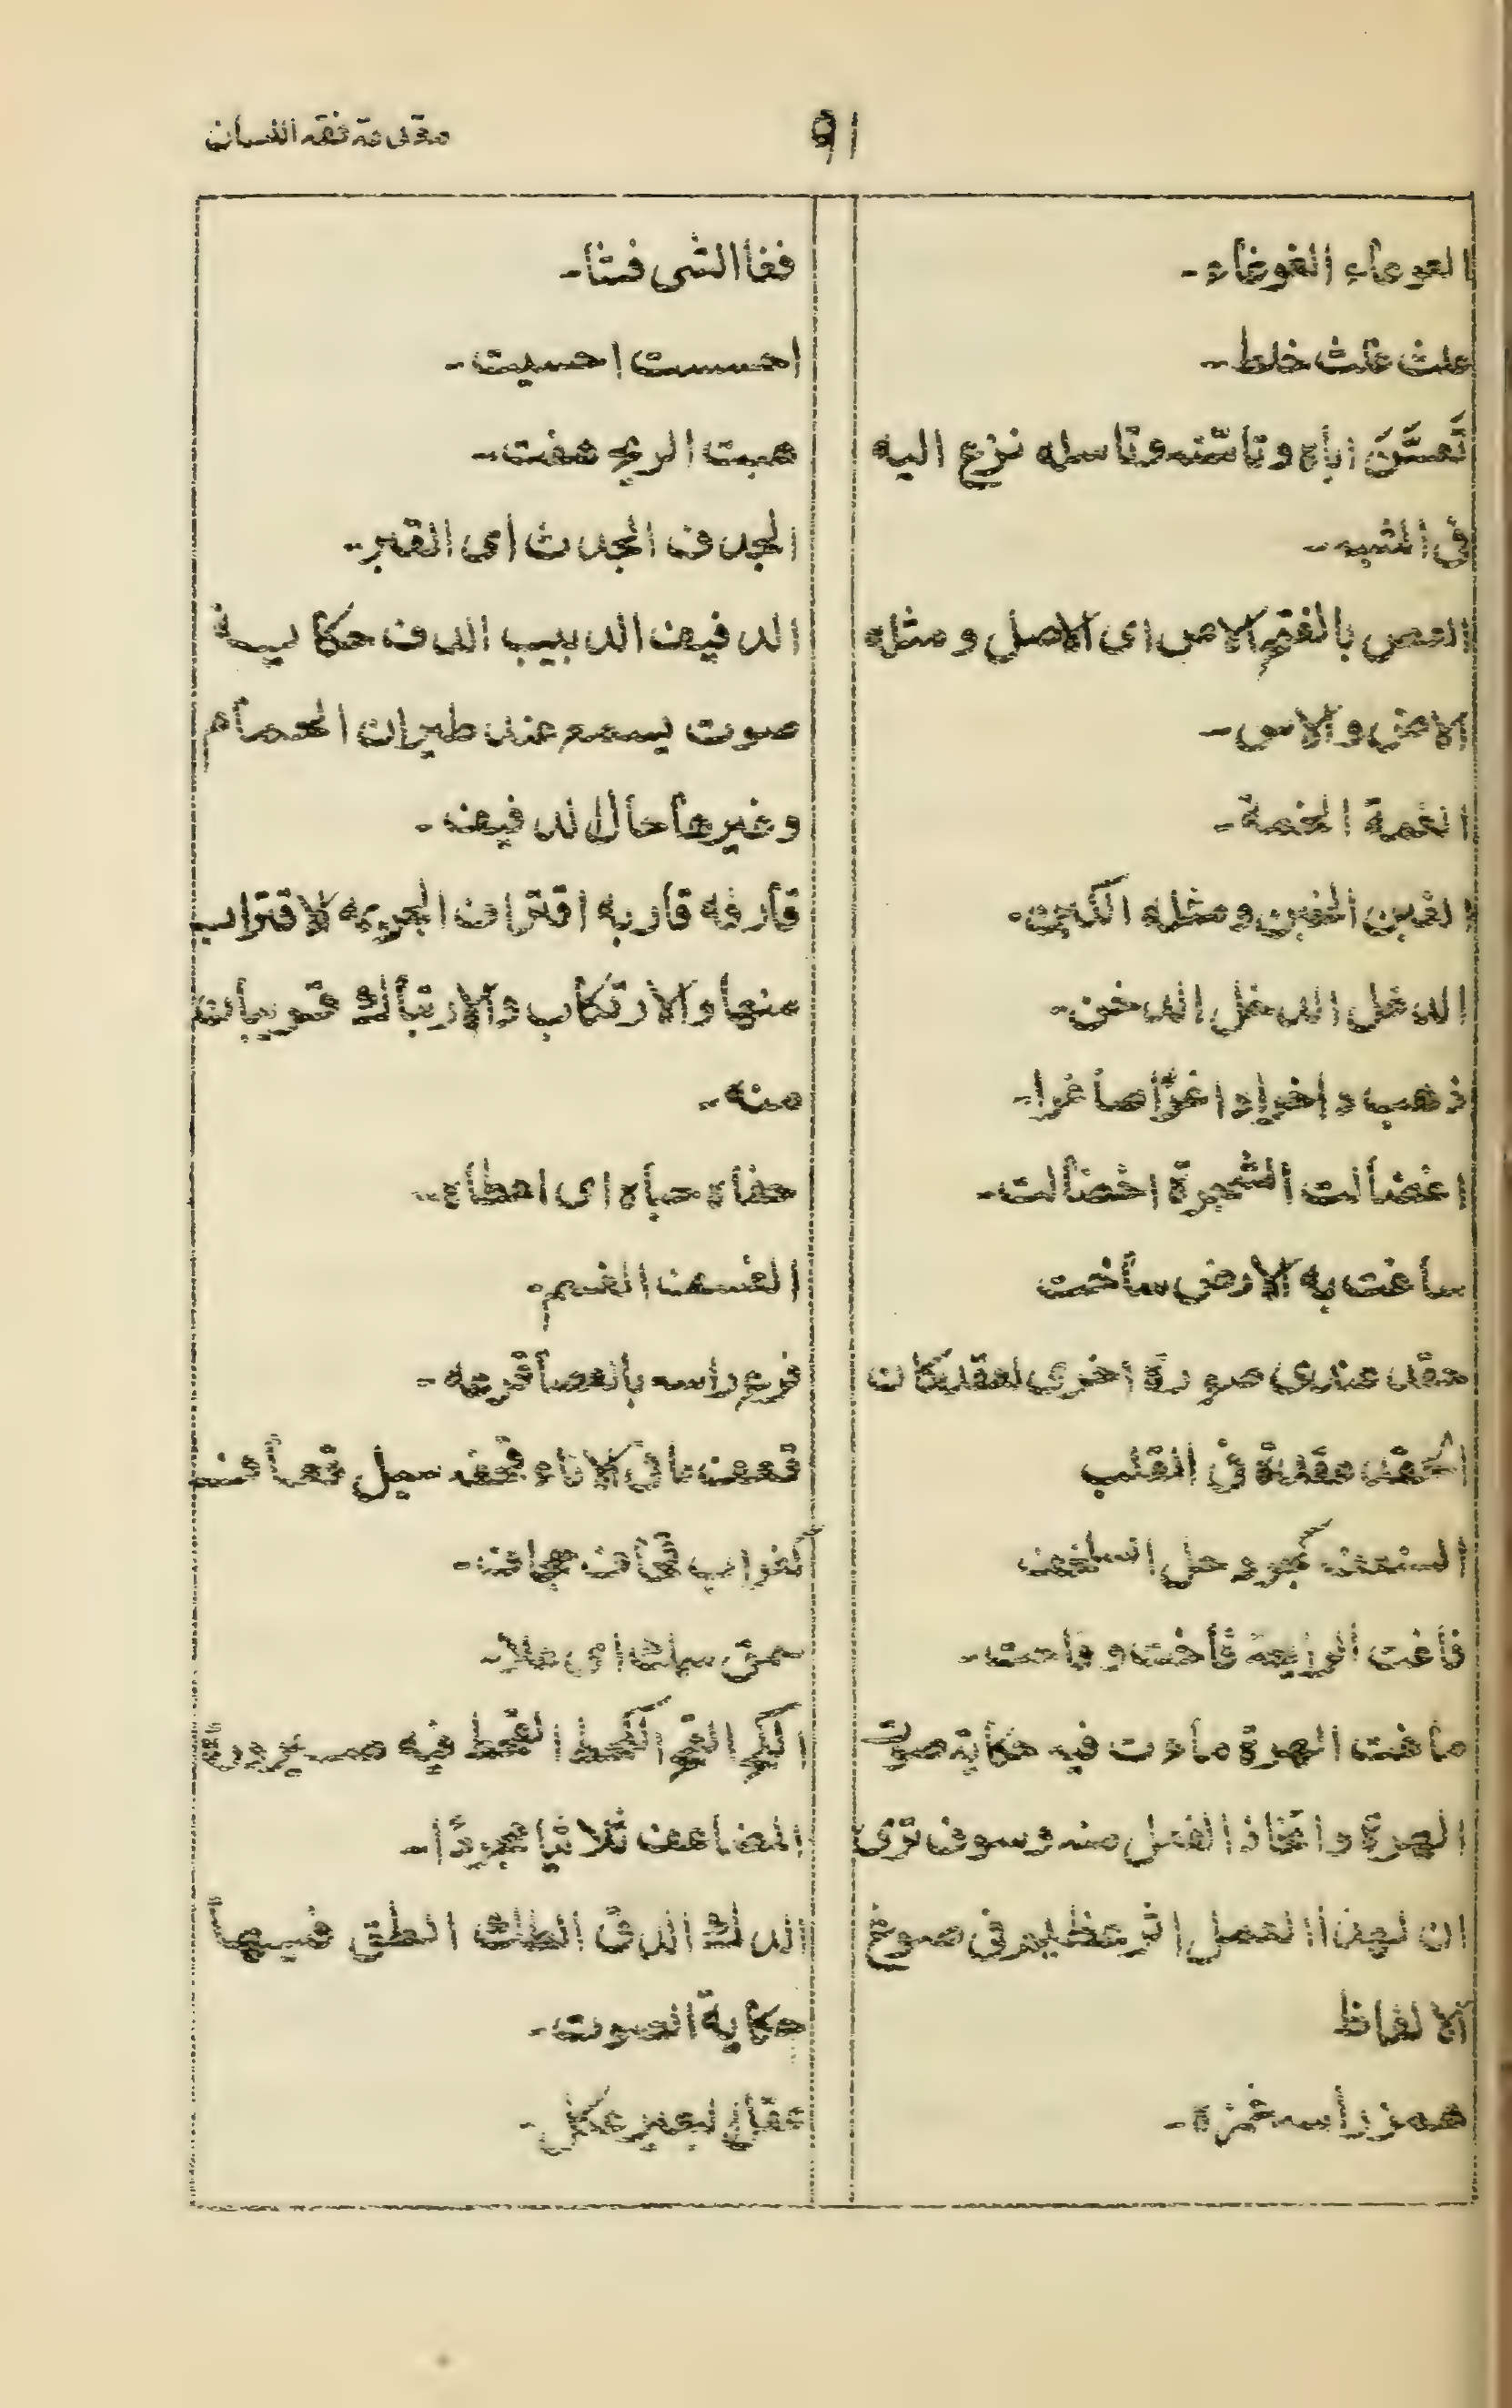 مقدمة فقه اللسان
٩١
العوعاء الغوغاء۔
علث غلث خلط۔
تَعسَّنَ اباه وتاسّنه وتاسله نزع اليه
فى الشبه۔
العص بالفتح الاص اى الاصل ومثله
الاض والاس۔
الغمة الخمة۔
الغبن الخبن ومثله الكبن۔
الدغل الدخل الدخن۔
ذهب
اغضالت الشجرة اخضالت۔
ساغت به الارض ساخت
عقد عندى صورة اخرى لعقد كان
الحقد عقدة فى القلب
السنعف كجردحل السلخف
فاغت الرايحة فاخت وفاحت۔
ماغت الهرة ماءت فيه حكاية صوت
الهرة واتخاذ الفعل منه وسوف ترى
ان لهذا العمل اثر عظيم فى صوغ
الالفاظ
همز راسه غمزه۔
فغا الشى فشا۔
احسست احسيت۔
هبت الريح هفت۔
الجدف الجدث اى القبر۔
الدفيف الدبيب الدف حكاية
صوت يسمع عند طيران الحمام
وغيرها حال الدفيف۔
قارفه قاربه اقتراف الجريمه لاقتراب
منها والارتكاب والارتباك قريبان
منه۔
حفاه حباه اى اعطاه۔
الغسف الغسم۔
فرع راسه بالعصا قرعه۔
قعف ما فى الاناء قحفه سيل قعاف
كغراب قحاف جحاف۔
اكبح الفح اكمح القحط فيه صيرورة
المضاعف ثلاثيا مجردًا۔
الدك الدق الطك الطق فيها
حكاية الصوت۔
عقل البعير عكل۔